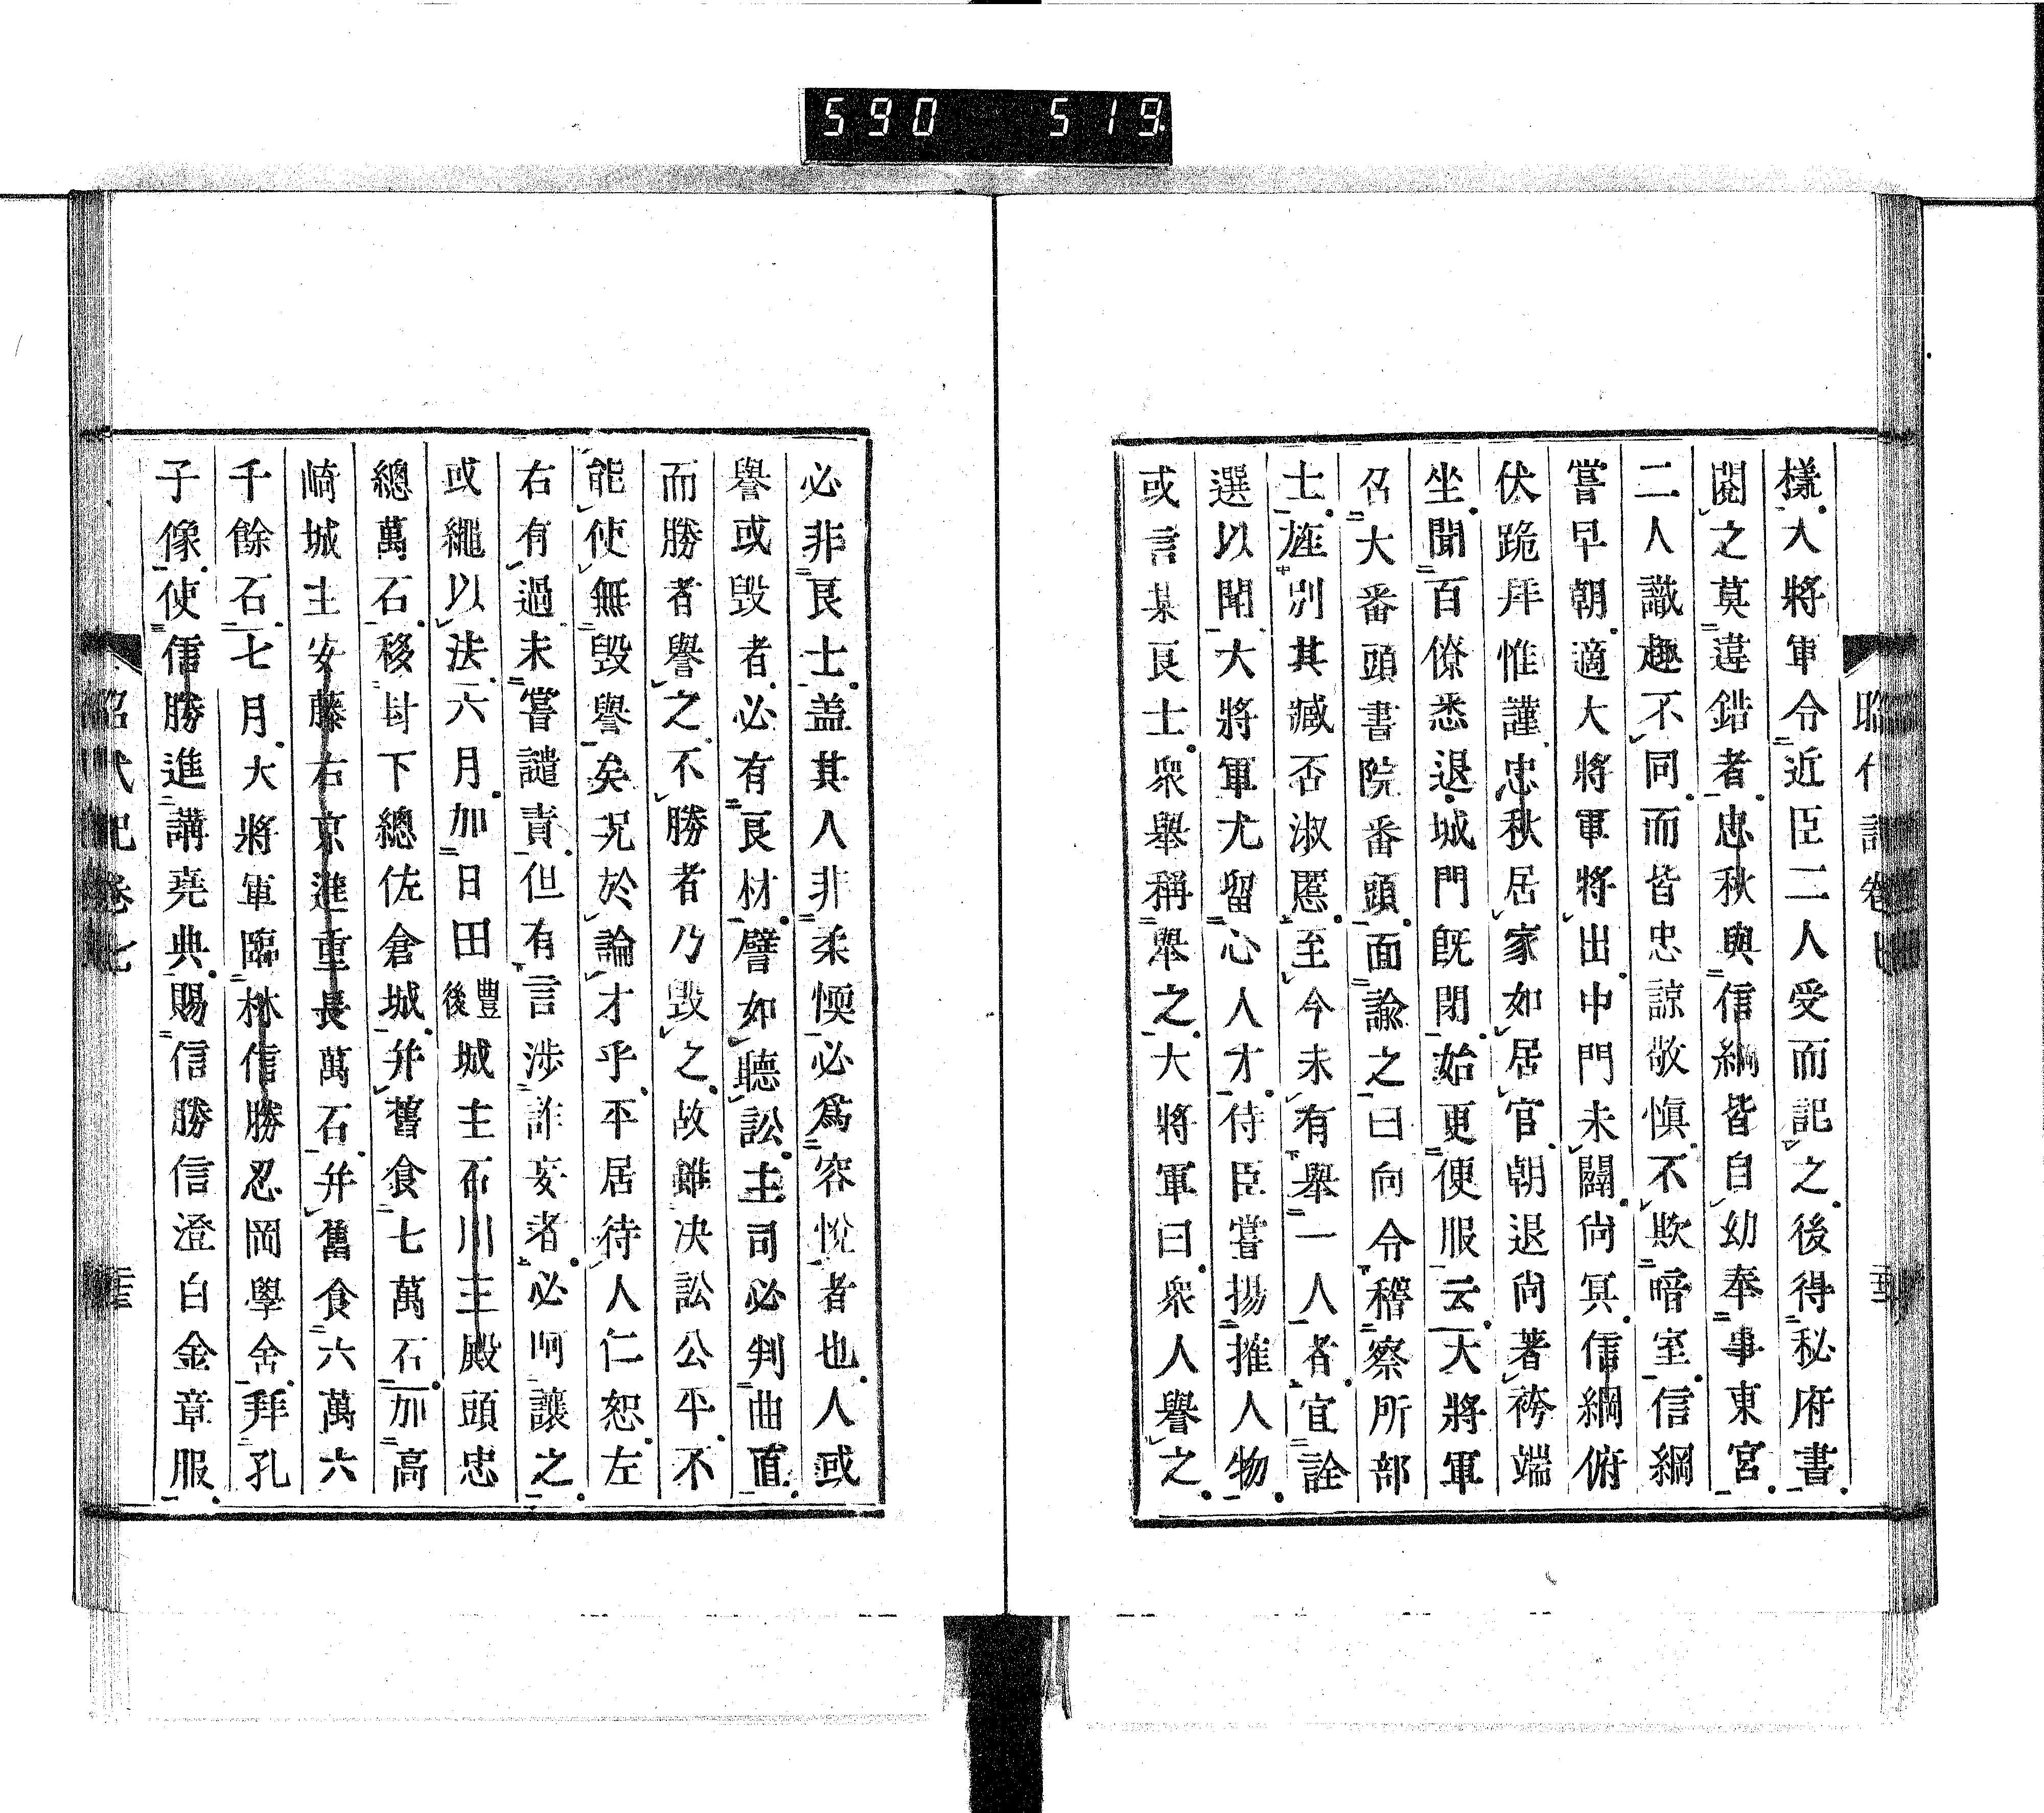 590 519
樣大將軍令近臣二人受而記之後得秘府書
閱之莫違錯者忠秋與信綱皆自幼奉事東宮
二人識趣不同而皆忠諒敬愼不欺暗室信綱
嘗早朝適大將軍將出中門未闢尙冥信綱俯
伏跪拜惟謹忠秋居家如居官朝退尙著袴端
坐聞百僚悉退城門旣閉始更便服云大將軍
召大番頭書院番頭面諭之曰向令稽察所部
士旌別其臧否淑慝至今未有擧一人者宜詮
選以聞大將軍尤留心人才待臣嘗揚搉人物
或言某良士衆擧稱擧之大將軍曰衆人譽之
必非良士盖其人非柔愞必爲容悅者也人或
譽或毀者必有良材譬如聽訟主司必判曲直
而勝者譽之不勝者乃毀之故雖决訟公平不
能使無毀譽矣況於論才乎平居待人仁恕左
右有過未嘗譴責但有言涉詐妄者必呵讓之
或繩以法六月加日田豐後城主石川主殿頭忠
總萬石移封下總佐倉城并舊食七萬石加高
崎城主安藤右京進重長萬石并舊食六萬六
千餘石七月大將軍臨林信勝忍岡學舍拜孔
子像使信勝進講堯典賜信勝信澄白金章服
昭代記卷七